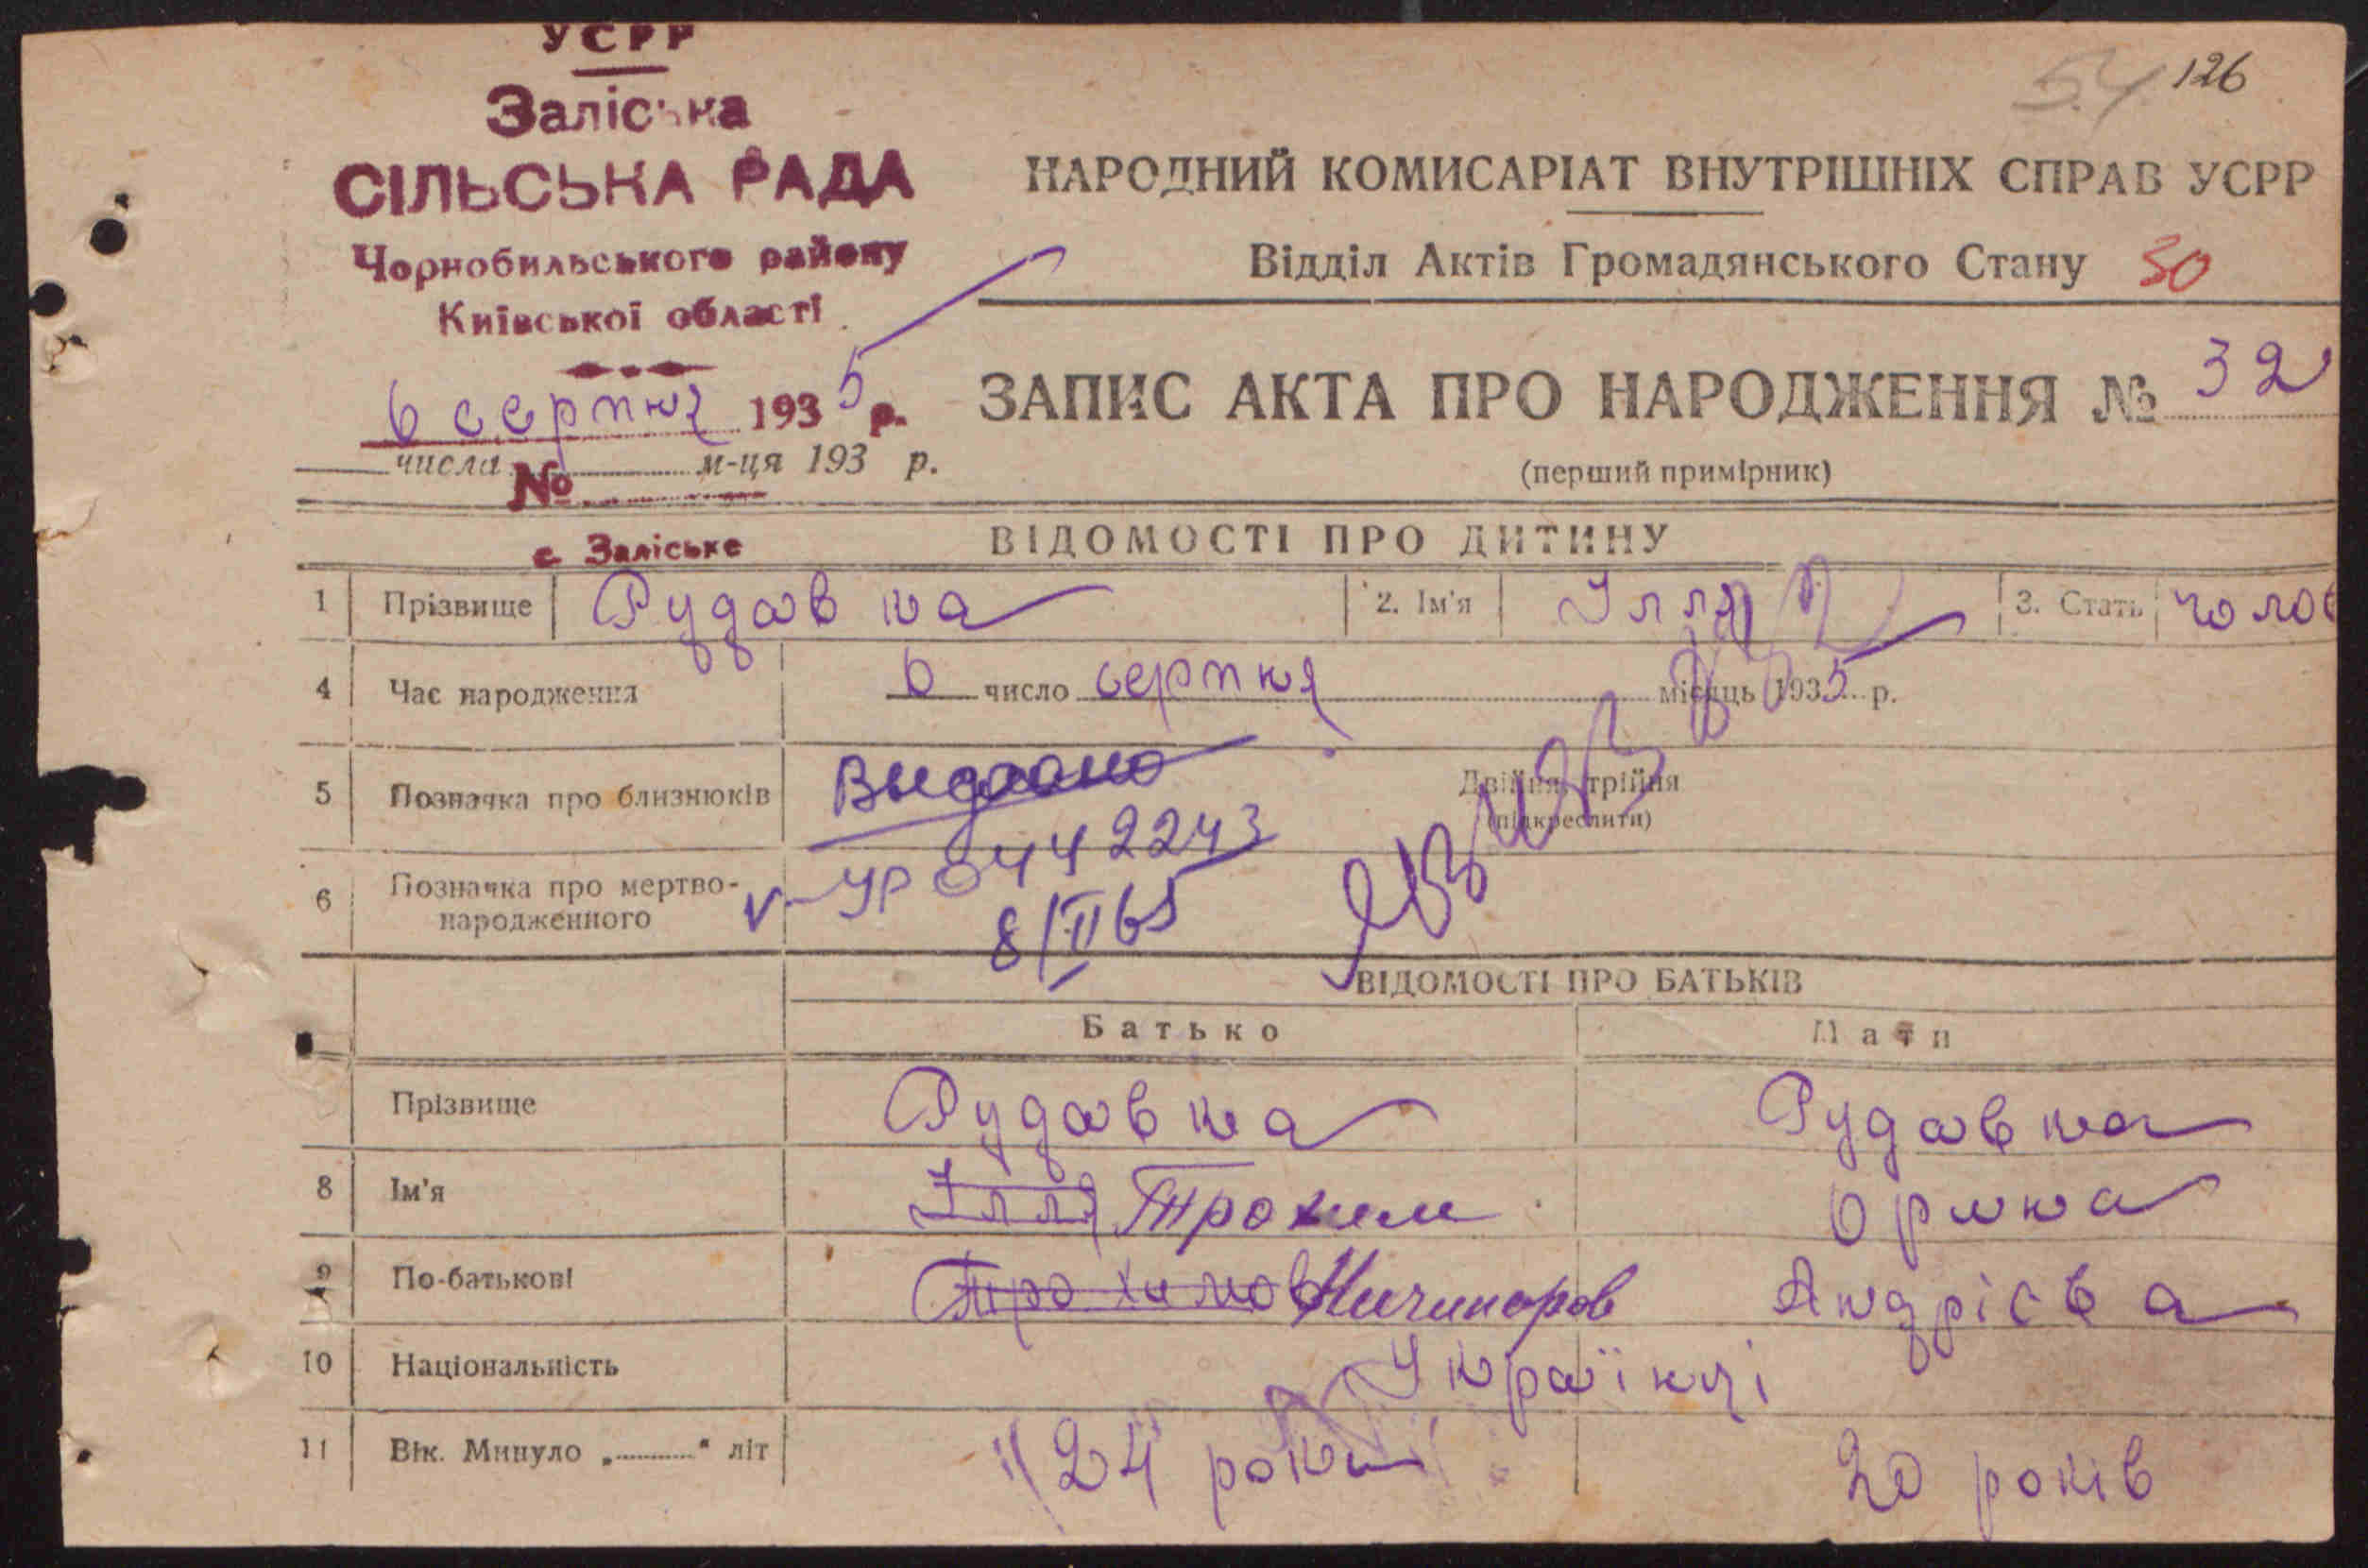 УСРР
54 126
Заліська
СІЛЬСЬКА РАДА
Чорнобильського району
Київської області
НАРОДНИЙ КОМИСАРІАТ ВНУТРІШНІХ СПРАВ УСРР
Відділ Актів Громадянського Стану 30
6 серпня 1935 р.
ЗАПИС АКТА ПРО НАРОДЖЕННЯ № 32
числа м-ця 193 р.
№
(перший примірник)
с Заліське
ВІДОМОСТІ ПРО ДИТИНУ
1 Прізвище Рудавка 2. Ім'я Ілля 3. Стать чолов
4 Час народження 6 число серпня місяць 1935 р.
5 Позначка про близнюків Выдано Двійня, трійня
(підкреслити)
УР 0442243
6 Позначка про мертво-
народженного
8/II 65
ВІДОМОСТІ ПРО БАТЬКІВ
Батько Мати
Прізвище Рудавка Рудавка
8 Ім'я Ілля Трохим Орина
9 По-батькові Трохимов Ничипоров Андрієва
10 Національність Українці
11 Вік. Минуло „..........“ літ 24 роки 20 років